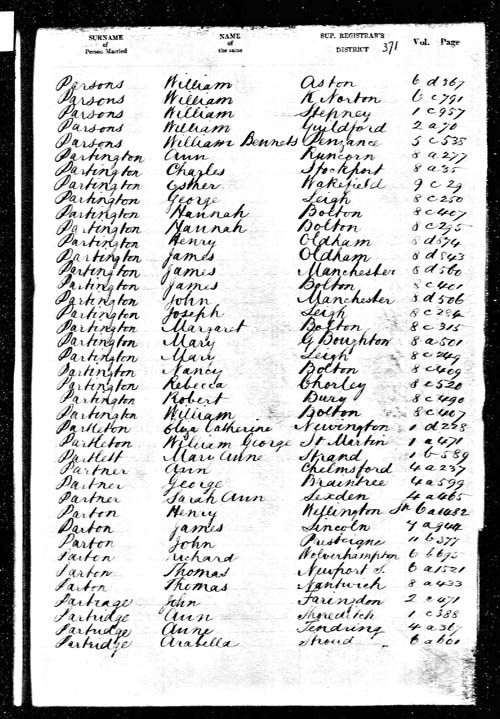 SURNAME of Person Married NAME of the same SUP. REGISTRAR'S DISTRICT 371 Vol. Page
Parsons William Aston 6 d 367
Parsons William K. Norton 6 c 791
Parsons William Stepney 1 c 957
Parsons William Guildford 2 a 70
Parsons William Bennets Penzance 5 c 535
Partington Ann Runcorn 8 a 277
Partington Charles Stockport 8 a 35
Partington Esther Wakefield 9 c 29
Partington George Leigh 8 c 250
Partington Hannah Bolton 8 c 407
Partington Hannah Bolton 8 c 295
Partington Henry Oldham 8 d 574
Partington James Oldham 8 d 543
Partington James Manchester 8 d 560
Partington James Bolton 8 c 401
Partington John Manchester 8 d 506
Partington Joseph Leigh 8 c 294
Partington Margaret Bolton 8 c 315
Partington Mary G. Boughton 8 a 501
Partington Mary Leigh 8 c 249
Partington Nancy Bolton 8 c 409
Partington Rebecca Chorley 8 c 520
Partington Robert Bury 8 c 490
Partington William Bolton 8 c 407
Partleton Catherine Newington 1 d 228
Partleton William George St Martin 1 a 471
Partlest Mary Anne Strand 1 b 589
Partner Ann Chelmsford 4 a 237
Partner George Braintree 4 a 599
Partner Sarah Ann Lexden 4 a 465
Parton Henry Wellington Sh. 6 a 1482
Parton James Lincoln 7 a 944
Parton John Presteigne 11 b 377
Parton Richard Wolverhampton 6 b 695
Parton Thomas Newport S. 6 a 1521
Parton Thomas Nantwich 8 a 433
Partridge John Faringdon 2 c 471
Partridge Ann Shoreditch 1 c 388
Partridge Anne Tendring 4 a 367
Partridge Arabella Stroud 6 a 601